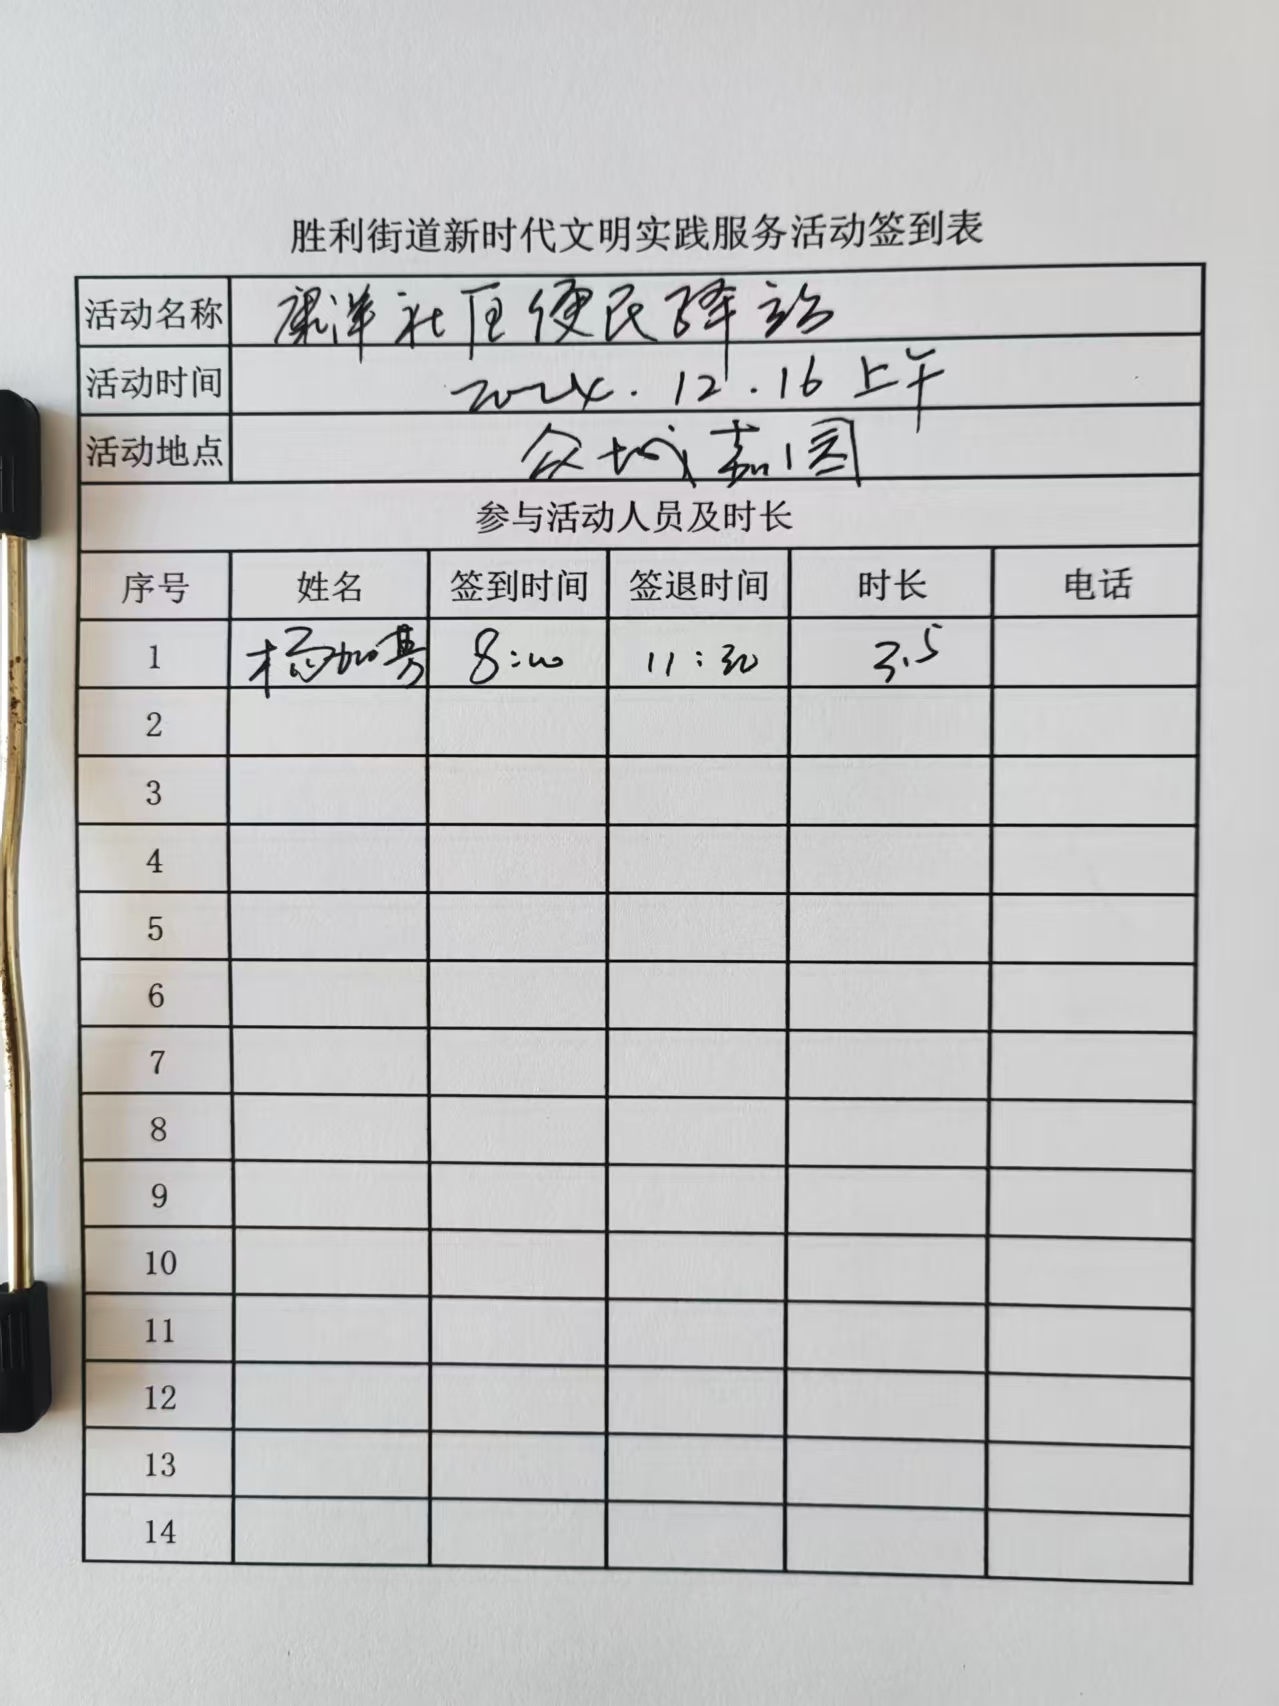 胜利街道新时代文明实践服务活动签到表
活动名称 康洋社区便民驿站
活动时间 2024.12.16上午
活动地点 众城嘉园
参与活动人员及时长
序号 姓名 签到时间 签退时间 时长 电话
1 杨加勇 8:00 11:30 3.5
2
3
4
5
6
7
8
9
10
11
12
13
14